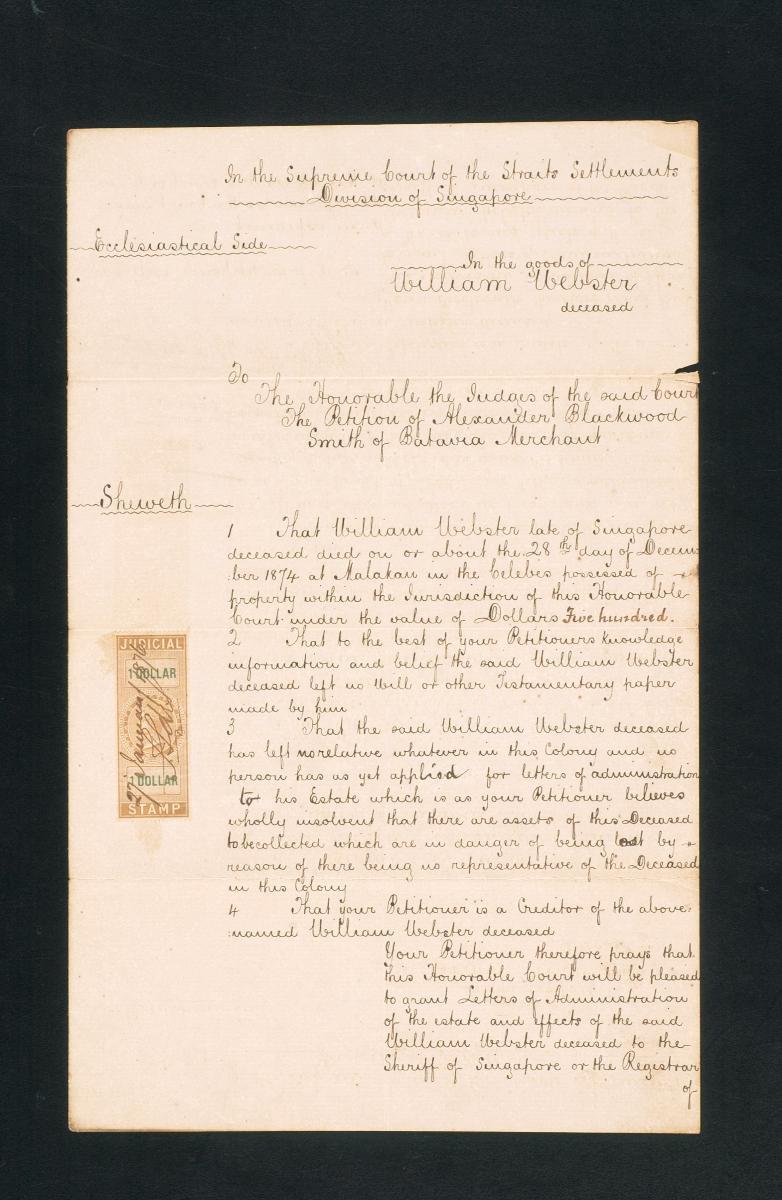 In the Supreme Court of the Straits Settlements
Division of Singapore
Ecclesiastical Side
In the goods of
William Webster
deceased
To
The Honorable the Judges of the said Court
The Petition of Alexander Blackwood
Smith of Batavia Merchant
Sheweth
1 That William Webster late of Singapore
deceased died on or about the 28th day of Decem
:ber 1874 at Malakan in the Celebes possessed of
property within the Jurisdiction of this Honorable
Court under the value of Dollars Five hundred.
2 That to the best of your Petitioners knowledge
information and belief the said William Webster
deceased left no Will or other Testamentary paper
made by him
3 That the said William Webster deceased
has left no relative whatever in this Colony and no
person has as yet applied for letters of administration
to his Estate which is as your Petitioner believes
wholly insolvent that there are assets of this Deceased
to be collected which are in danger of being lost by
reason of there being no representative of the Deceased
in this Colony
4 That your Petitioner is a Creditor of the above
:named William Webster deceased
Your Petitioner therefore prays that
this Honorable Court will be pleased
to grant Letters of Administration
of the estate and effects of the said
William Webster deceased to the
Sheriff of Singapore or the Registrar
of
JUDICIAL
1 DOLLAR
27 January 1876
1 DOLLAR
STAMP